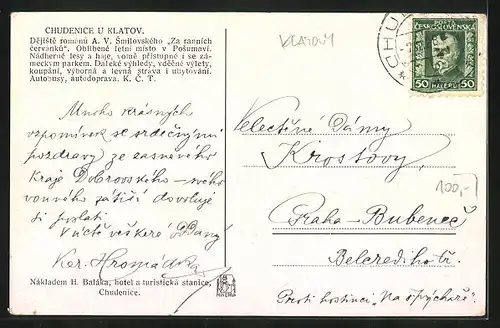 CHUDENICE U KLATOV.
Dějiště románů A. V. Šmilovského „Za ranních
červánků“. Oblíbené letní místo v Pošumaví.
Nádherné lesy a haje, volně přístupné i se zá-
meckým parkem. Daleké výhledy, vděčné výlety,
koupání, výborná a levná strava i ubytování.
Autobusy, autodoprava. K. Č. T.
Mnoho krásných
vzpomínek se srdečnými
pozdravy ze zasněného
kraje Dobrovského – svého
vonného zátiší dovoluje
si poslati
V úctě veškeré oddaný
Kar. Hromádka
Nákladem H. Baláka, hotel a turistická stanice,
Chudenice.
KLATOVY
CHU
POŠTA
ČESKOSLOVENSKÁ
50 HALÉŘŮ 50
Velectěné Dámy
Krostovy,
100,-
Praha - Bubeneč
Belcrediho tř.
Proti hostinci „Na Špýchaře“